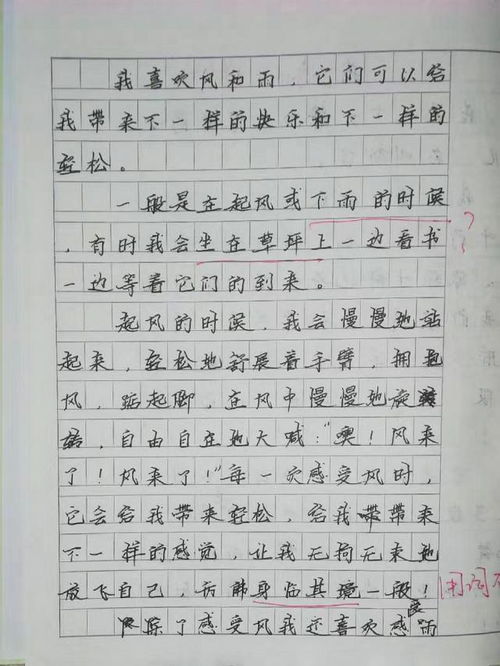 我喜欢风和雨，它们可以给
我带来不一样的快乐和不一样的
轻松。
一般是在起风或下雨的时候
，有时我会坐在草坪上一边看书
一边等着它们的到来。
起风的时候，我会慢慢地站
起来，轻松地舒展着手臂，拥抱
风，踮起脚，在风中慢慢地旋转
，自由自在地大喊：“奥！风来
了！风来了！”每一次感受风时，
它会给我带来轻松，给我带来
不一样的感觉，让我无拘无束地
放飞自己，仿佛身临其境一般！
除了感受风我还喜欢感受雨
？
用词不